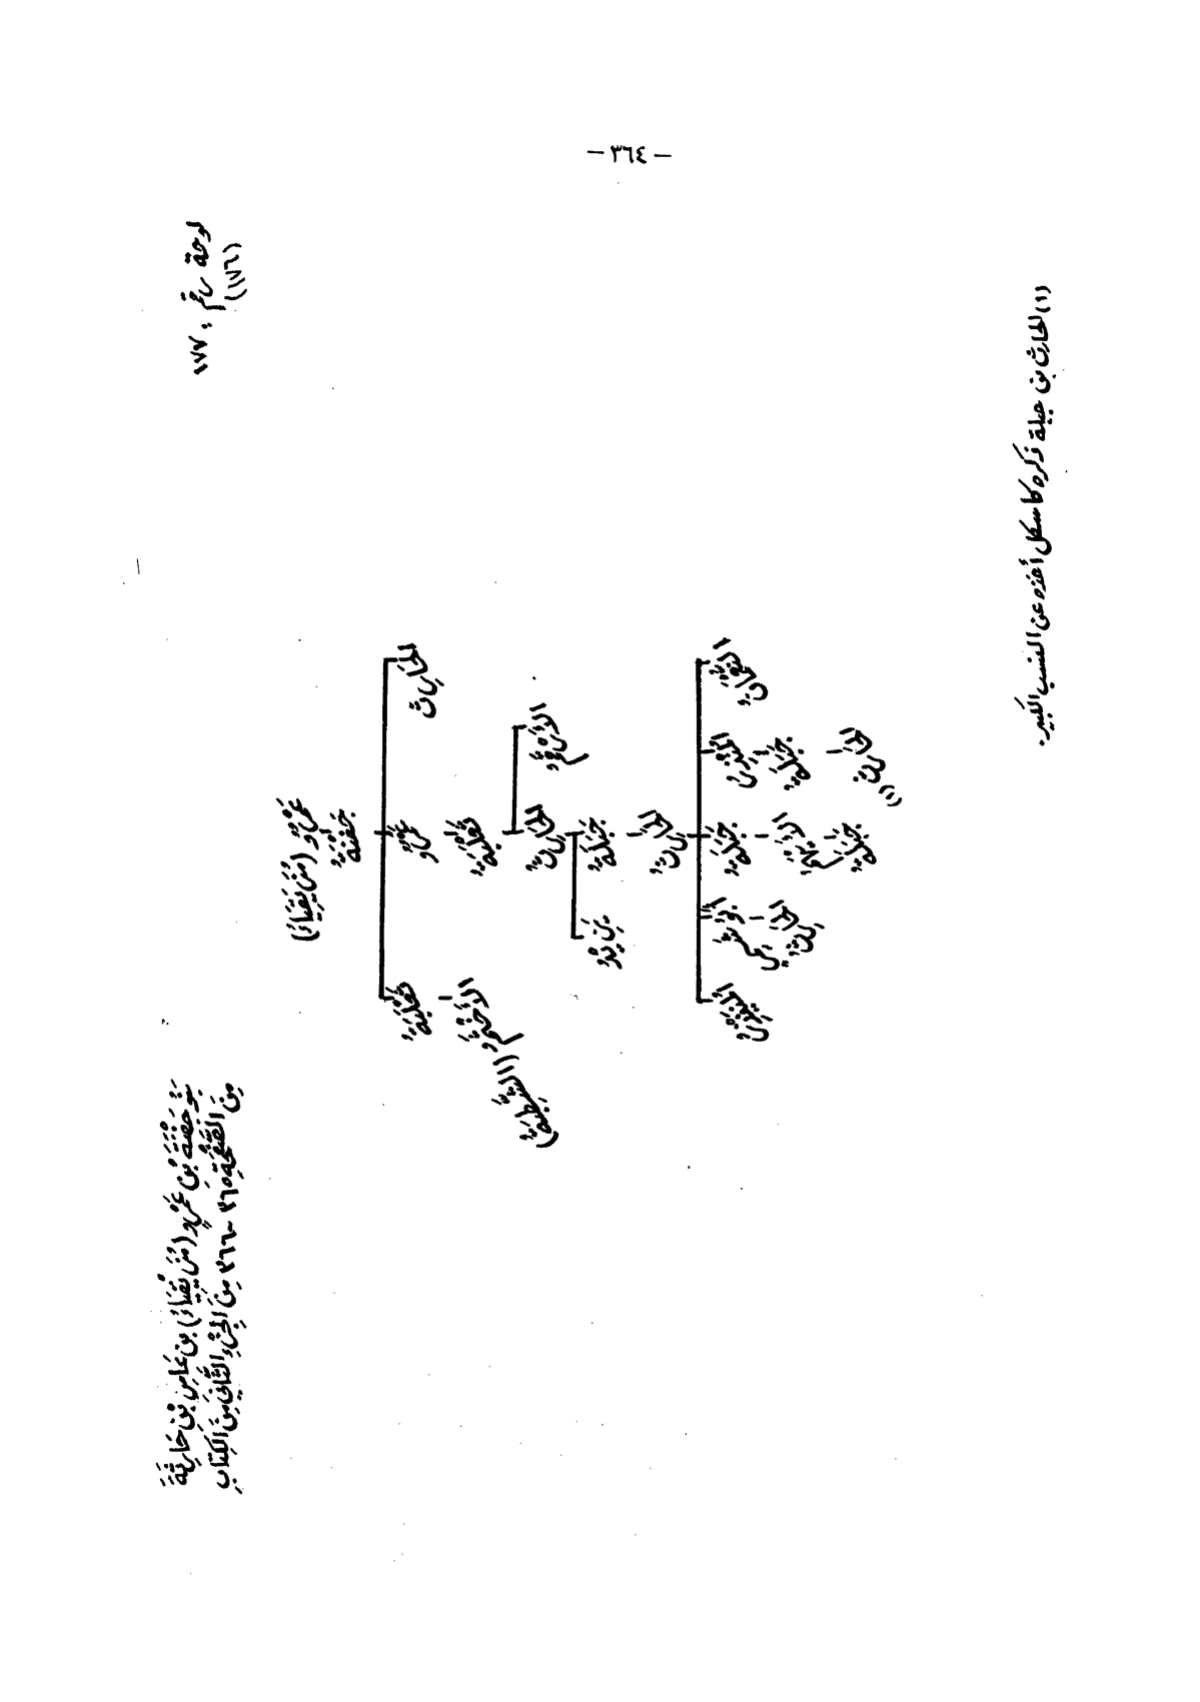 - ٣٦٤ -
لوحة رقم : ١٧٧
(١٧٦)
بَنُو جَفْنَةَ بْنِ عَمْرٍو (مُزَيْقِيَاءَ) بْنِ عَامِرِ بْنِ حَارِثَةَ
مِنَ الصَّفْحَةِ ٣٦٥ - ٣٦٦ مِنَ الجُزْءِ الثَّانِي مِنَ الكِتَابِ
عَمْرُو (مُزَيْقِيَاءُ)
جَفْنَةُ
الحَارِثُ
عَمْرُو
ثَعْلَبَةُ
ثَعْلَبَةُ
الأَرْقَمُ
الحَارِثُ
جَبَلَةُ
يَزِيدُ
الحَارِثُ
النُّعْمَانُ
المُنْذِرُ
جَبَلَةُ
الحَارِثُ (١)
جَبَلَةُ
الأَيْهَمُ
جَبَلَةُ
الحَارِثُ
المُنْذِرُ
(١) الحارث بن جبلة ذكره كاسكل أخذه عن النسب الكبير.